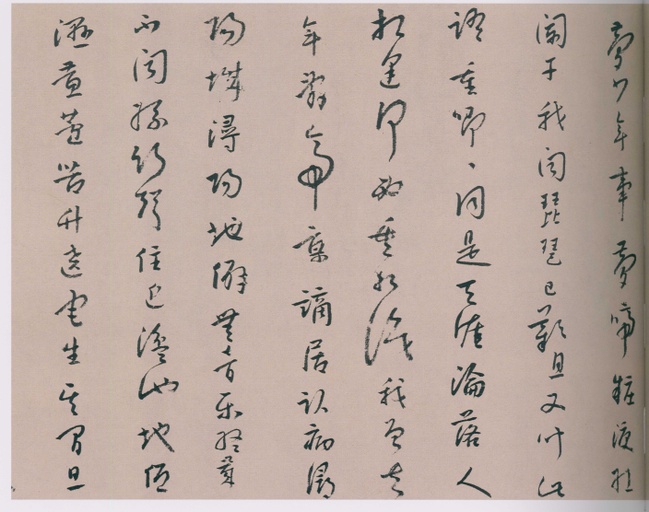 夢少年事夢啼粧淚紅
闌干我聞琵琶已歎息又聞此
語重唧唧同是天涯淪落人
相逢何必曾相識我從去
年辭帝京謫居臥病潯
陽城潯陽地僻無音樂終歲
不聞絲竹聲住近湓池地低
濕黃蘆苦竹遶宅生其間旦